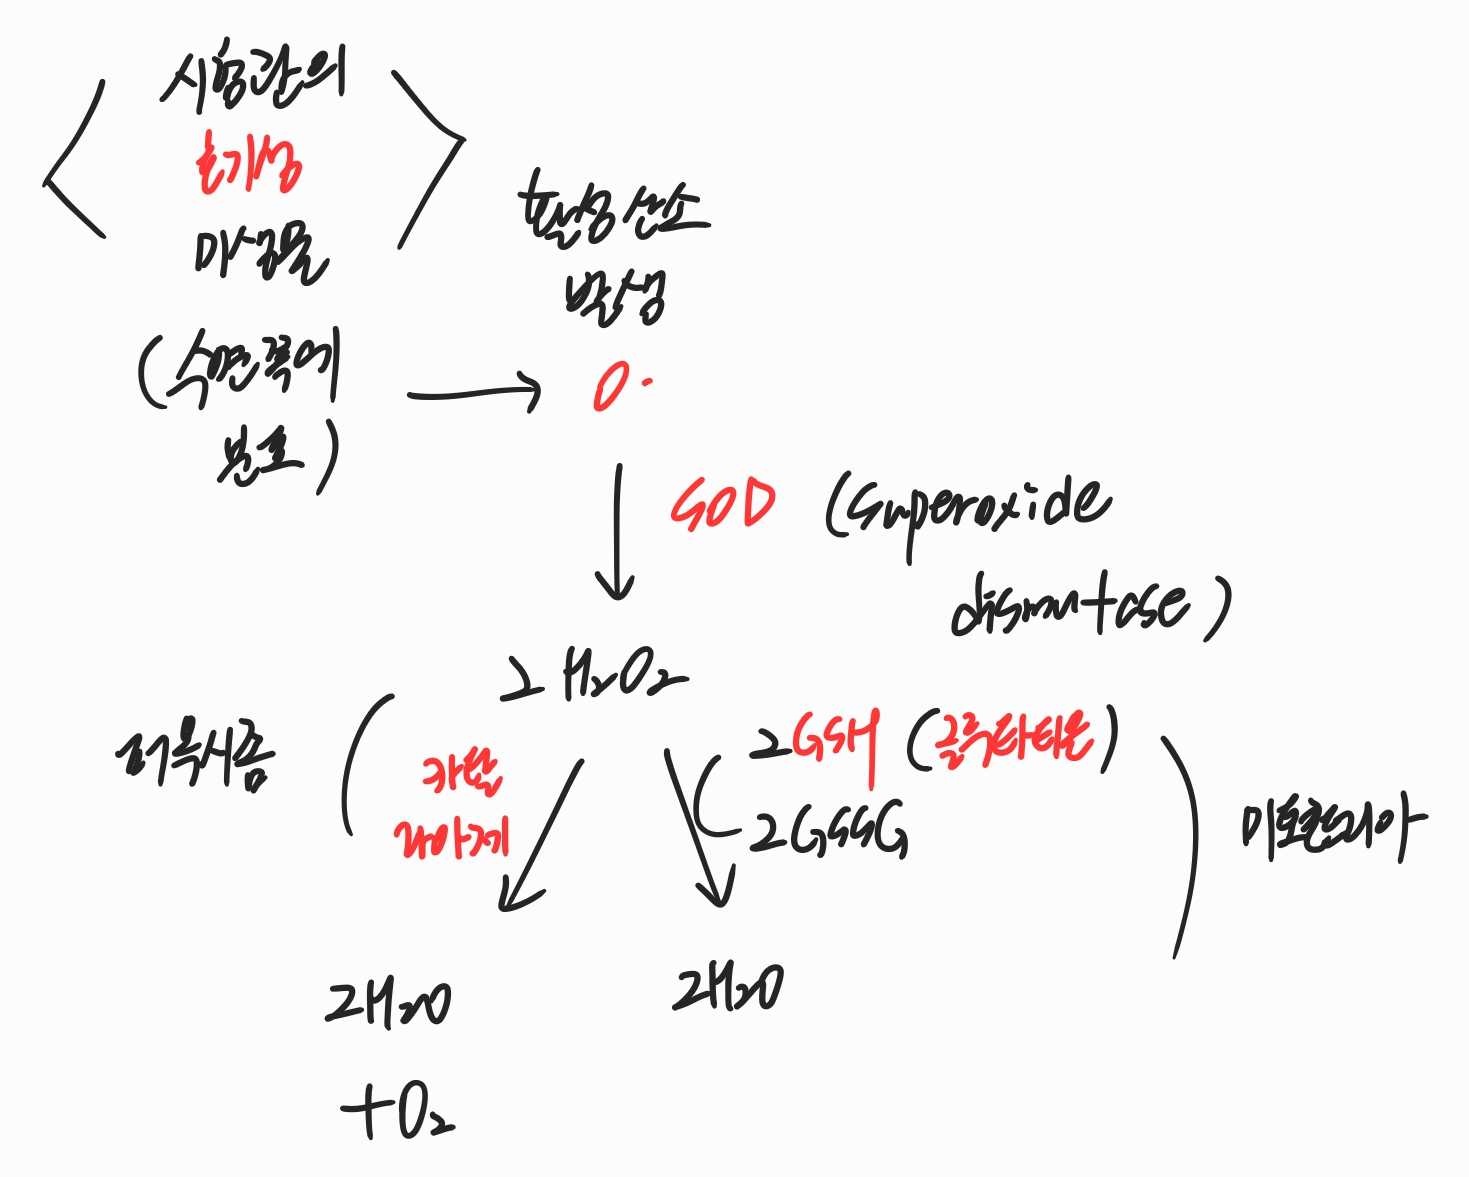 시험관의
호기성
미생물
(수면쪽에
분포)
활성산소
발생
O·
SOD (Superoxide
dismutase)
2 H2O2
퍼옥시좀
카탈
라아제
2GSH (글루타티온)
2GSSG
미토콘드리아
2H2O
+O2
2H2O